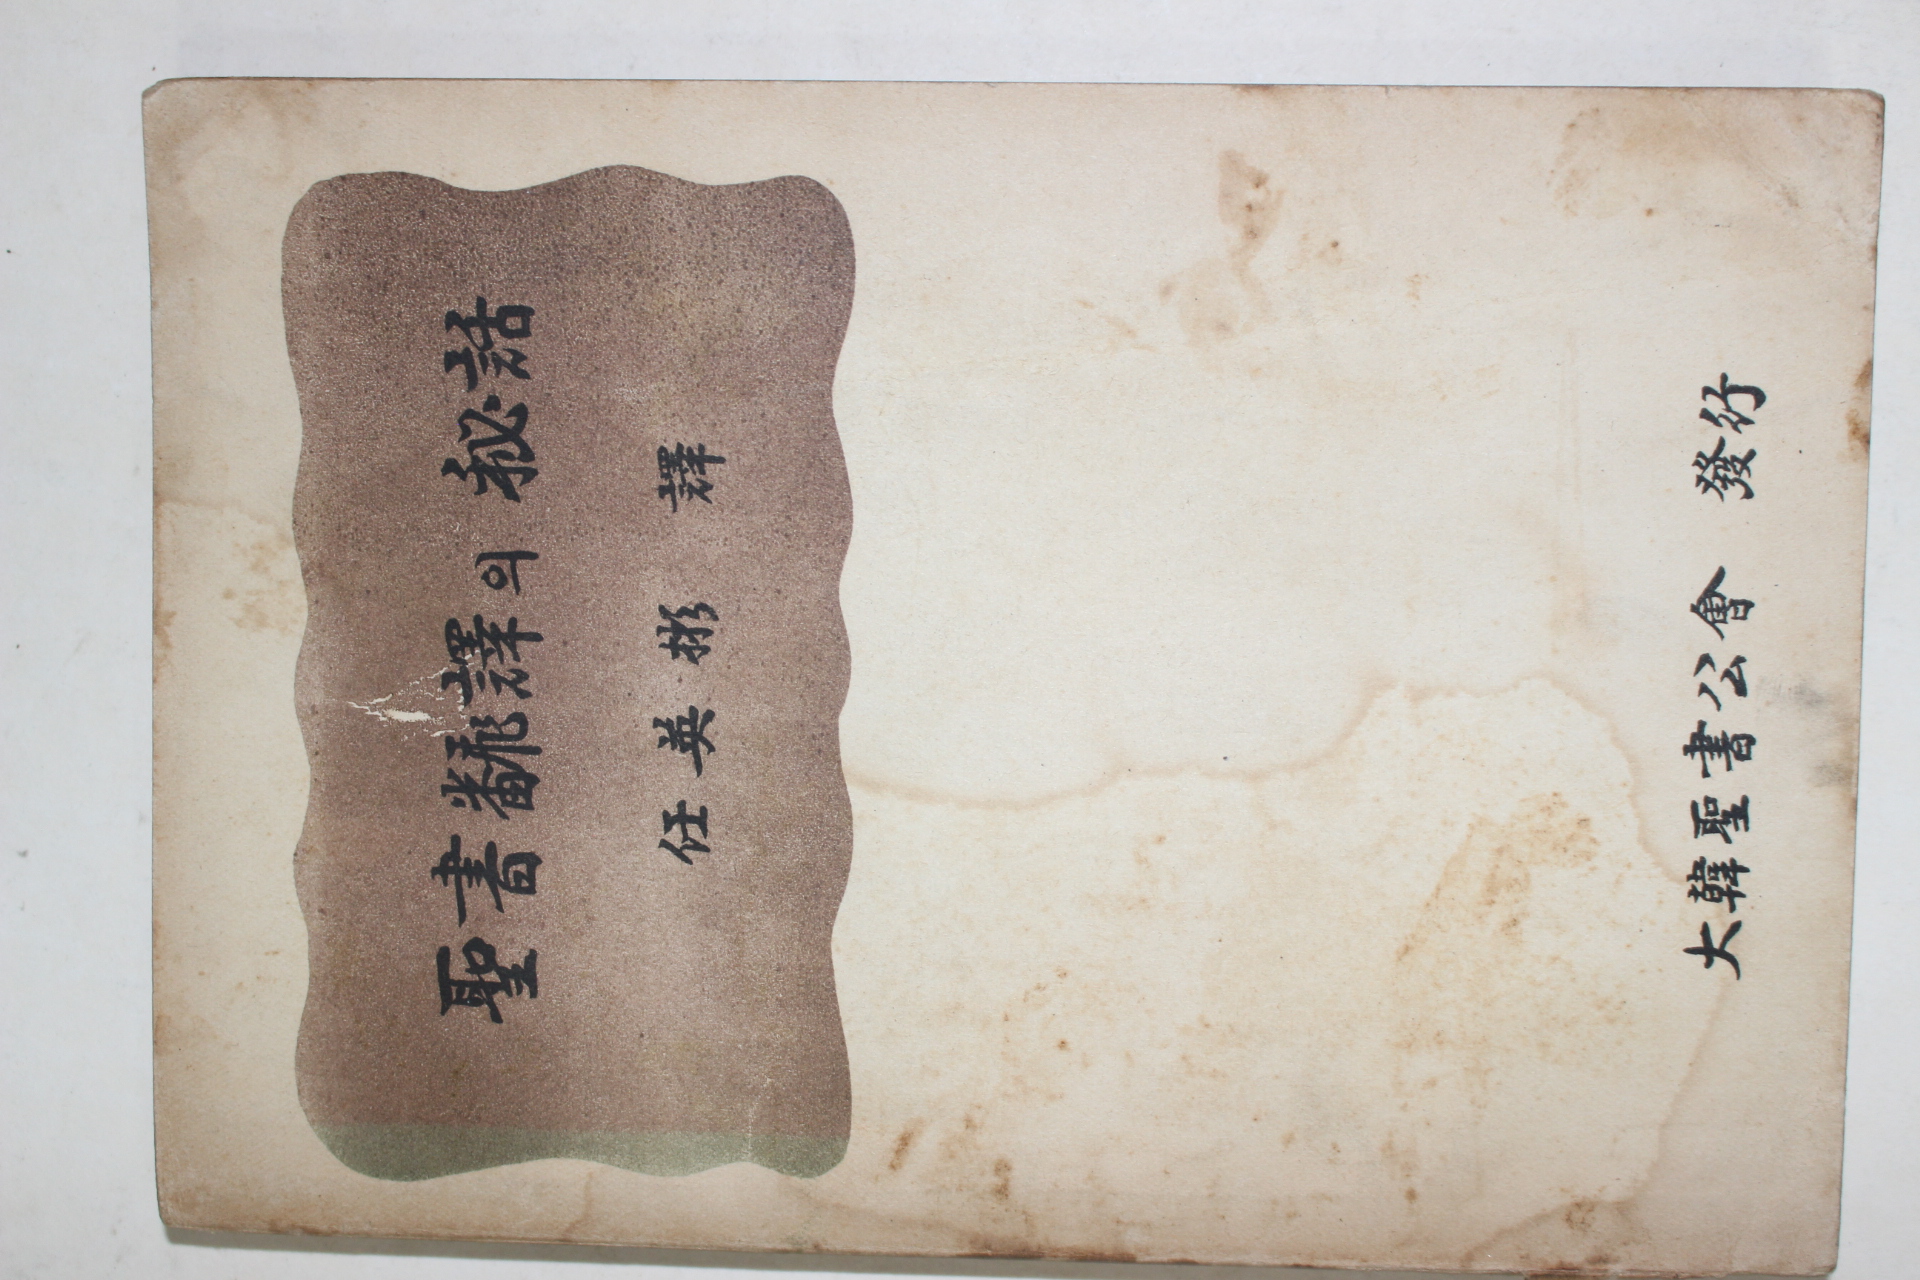 聖書飜譯의 秘話
任英彬 譯
大韓聖書公會 發行